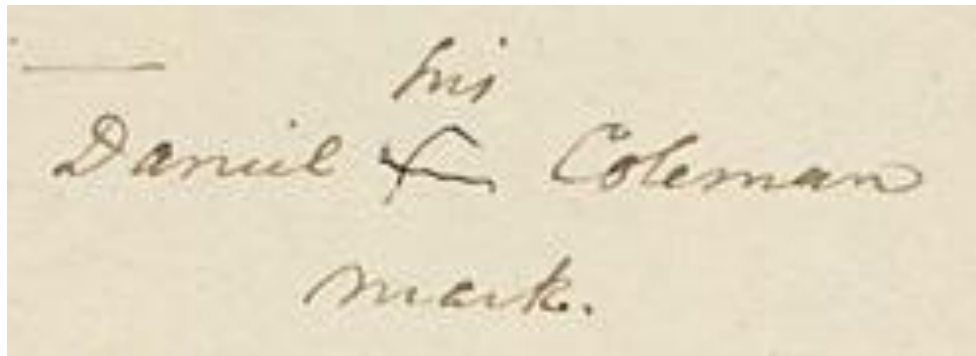 his
Daniel X Coleman
mark.